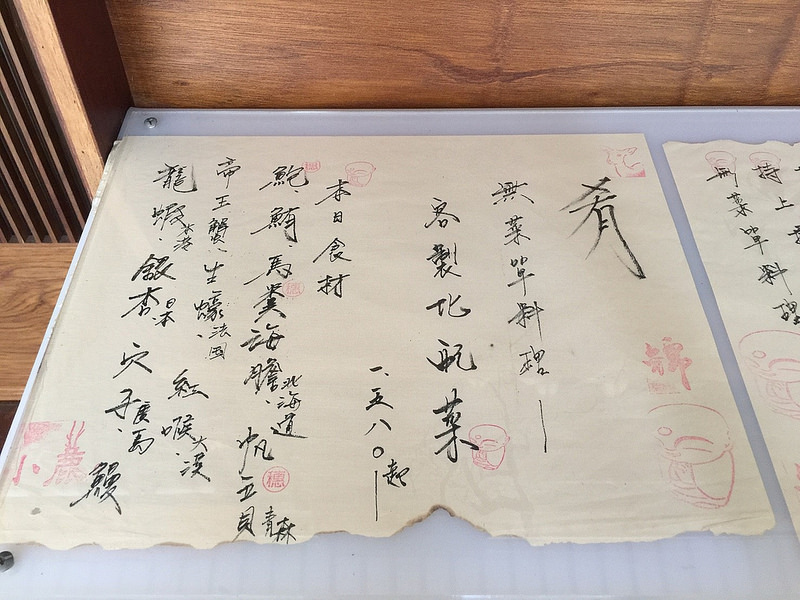 肴
無菜單料理｜
客製化配菜
一、五八〇起｜
本日食材
鮑、鮪、馬糞海膽北海道、帆立貝青森
帝王蟹、生蠔法國、紅喉大溪
龍蝦大溪、銀杏日本、穴子廣島、鰻
持上
無菜單料理